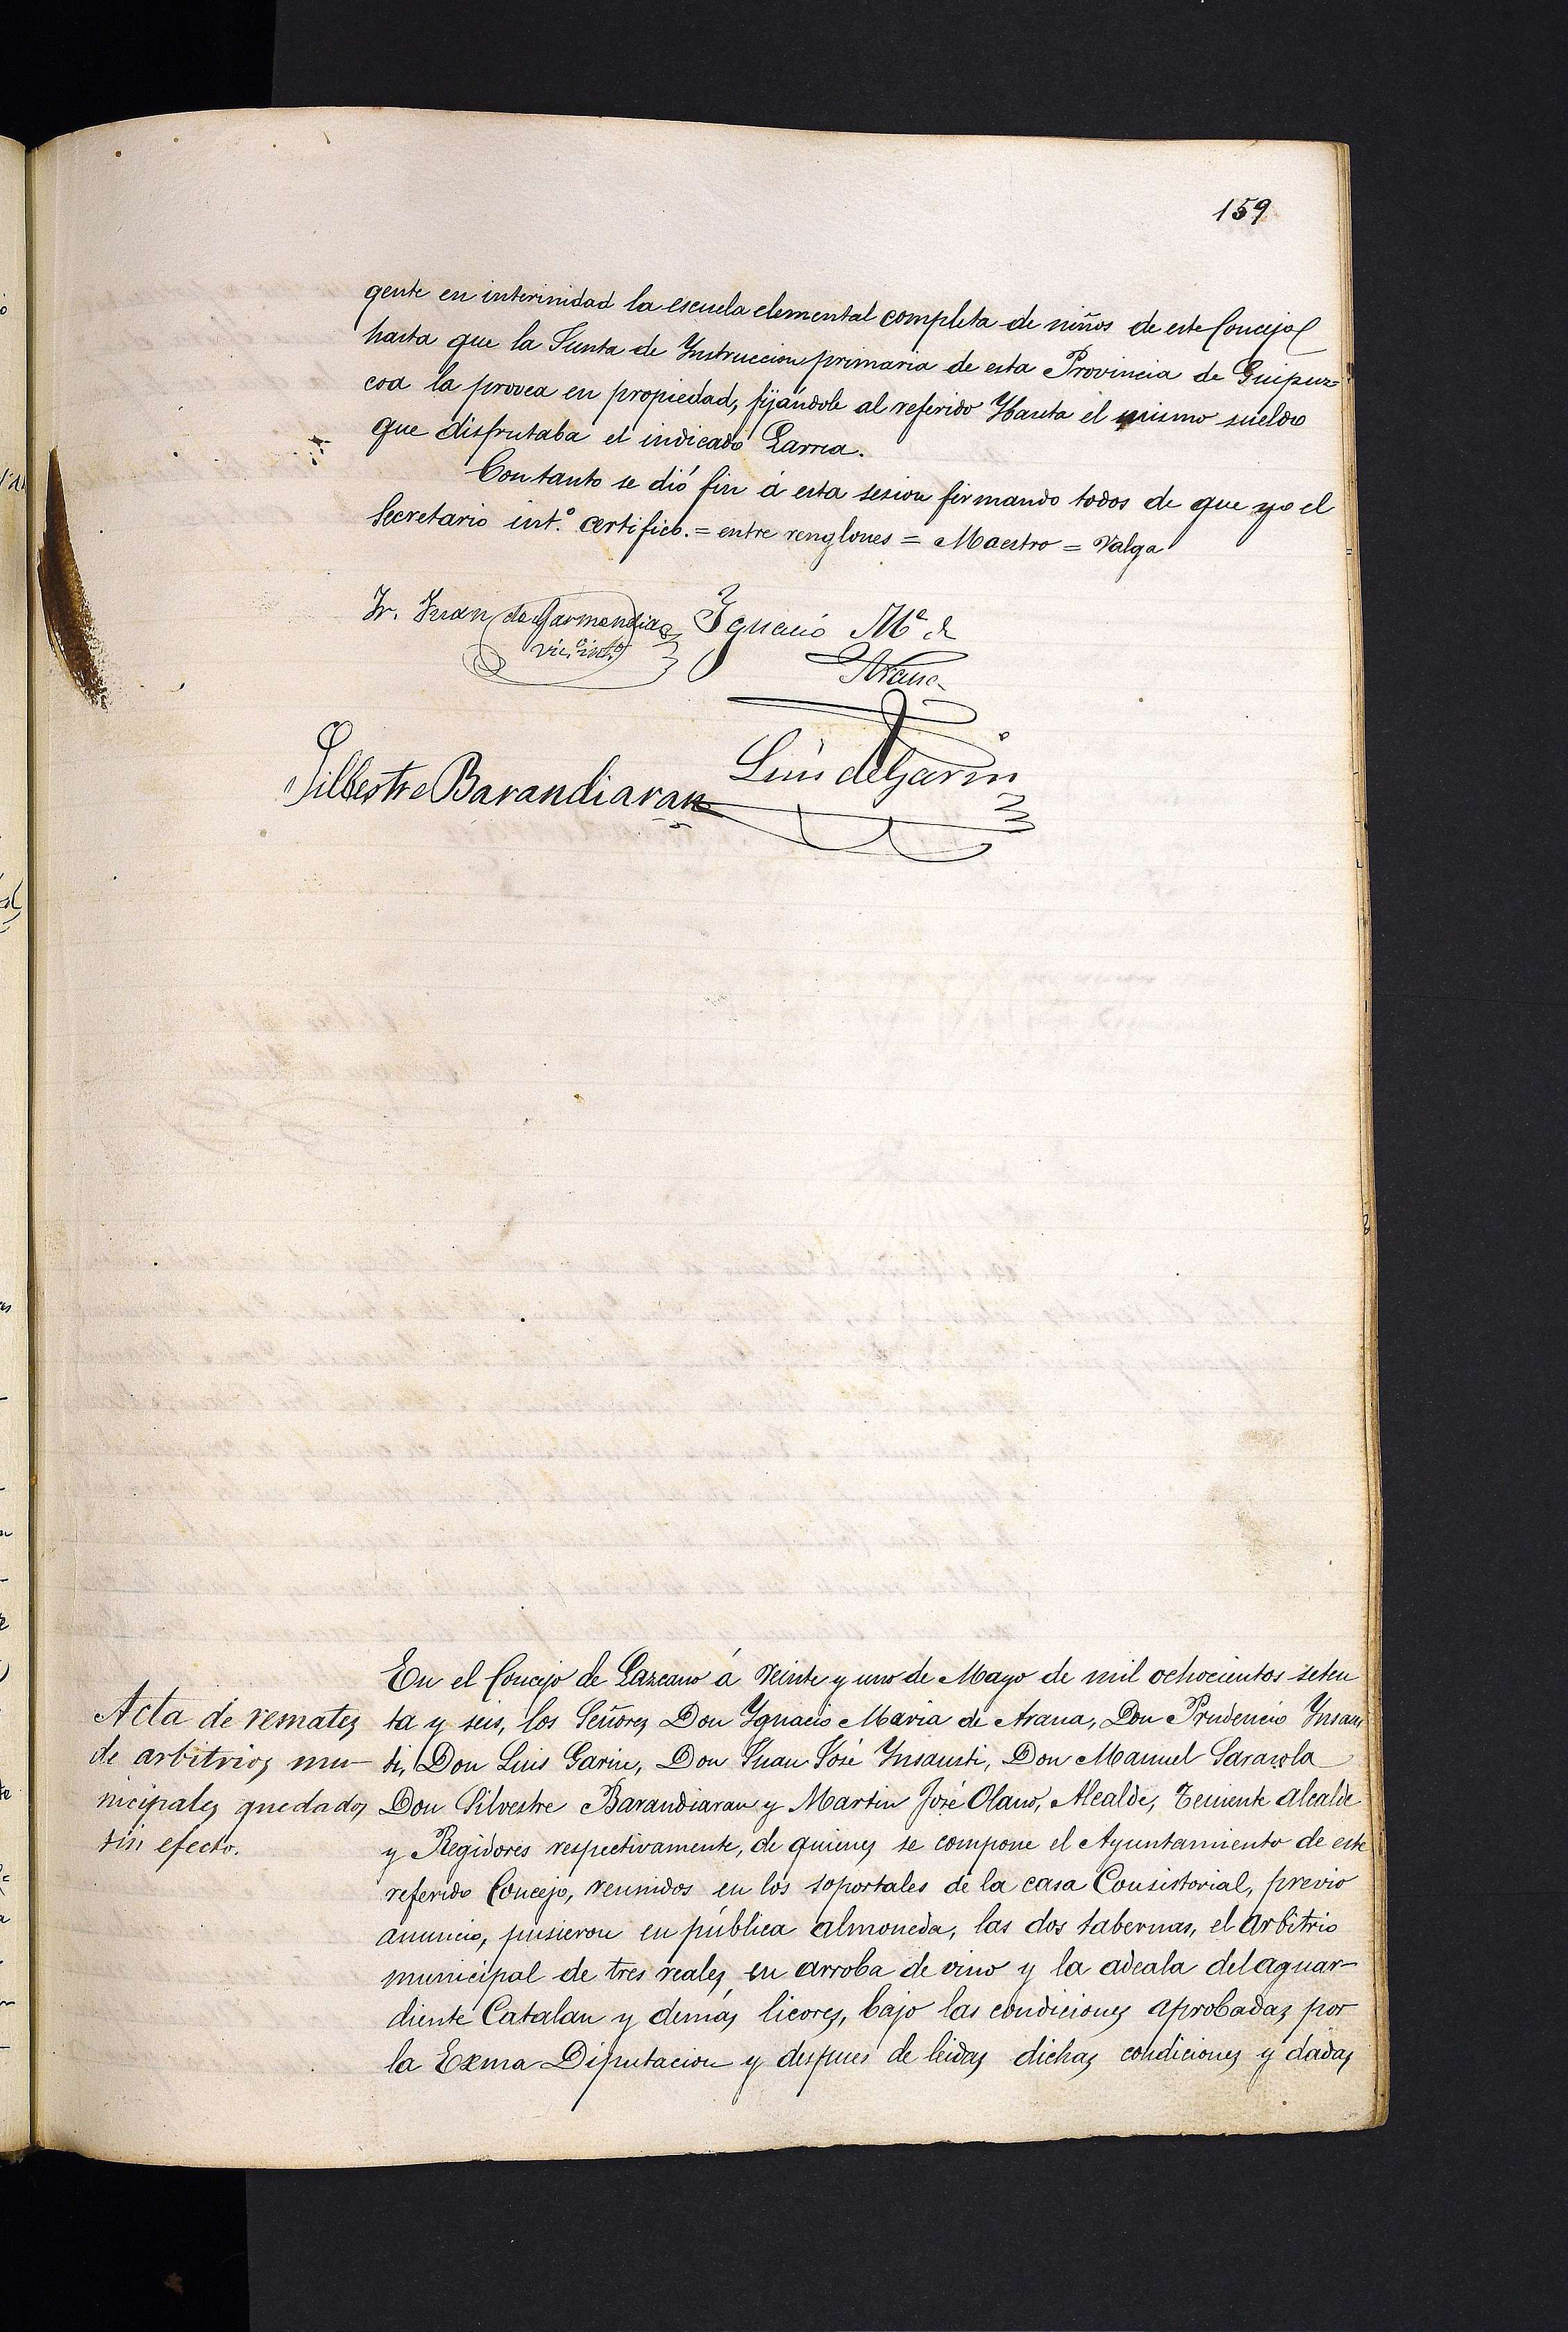 159
gente en interinidad la escuela elemental completa de niños de este Concejo
hasta que la Junta de Ynstruccion primaria de esta Provincia de Guipuz=
coa la provea en propiedad, fijándole al referido Ybarrta el mismo sueldo
que disfrutaba el indicado Larrea.
Con tanto se dió fin á esta sesion firmando todos de que yo el
Secretario int.º certifico. = entre renglones = Maestro = Valga
Fr. Juan de Garmendia
Vic.º int.º
Ignacio Mª de
Arana
Silbestre Barandiaran
Luis de Garin
Acta de remates
de arbitrios mu-
nicipales quedados
sin efecto.
En el Concejo de Lazcano á veinte y uno de Mayo de mil ochocientos seten
ta y seis, los Señores Don Ygnacio Maria de Arana, Don Prudencio Ynsaus
ti, Don Luis Garin, Don Juan José Ynsausti, Don Manuel Sarasola
Don Silvestre Barandiaran y Martin José Olano, Alcalde, Teniente alcalde
y Regidores respectivamente, de quienes se compone el Ayuntamiento de este
referido Concejo, reunidos en los soportales de la casa Consistorial, previo
anuncio, pusieron en pública almoneda, las dos tabernas, el arbitrio
municipal de tres reales en arroba de vino y la adeala del aguar-
diente Catalan y demás licores, bajo las condiciones aprobadas por
la Exma Diputacion y despues de leidas dichas condiciones y dadas